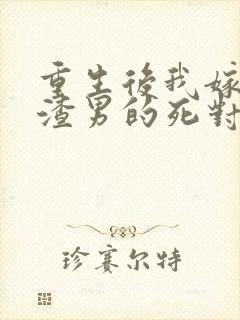 重生後我嫁
渣男的死對
珍赛尔特